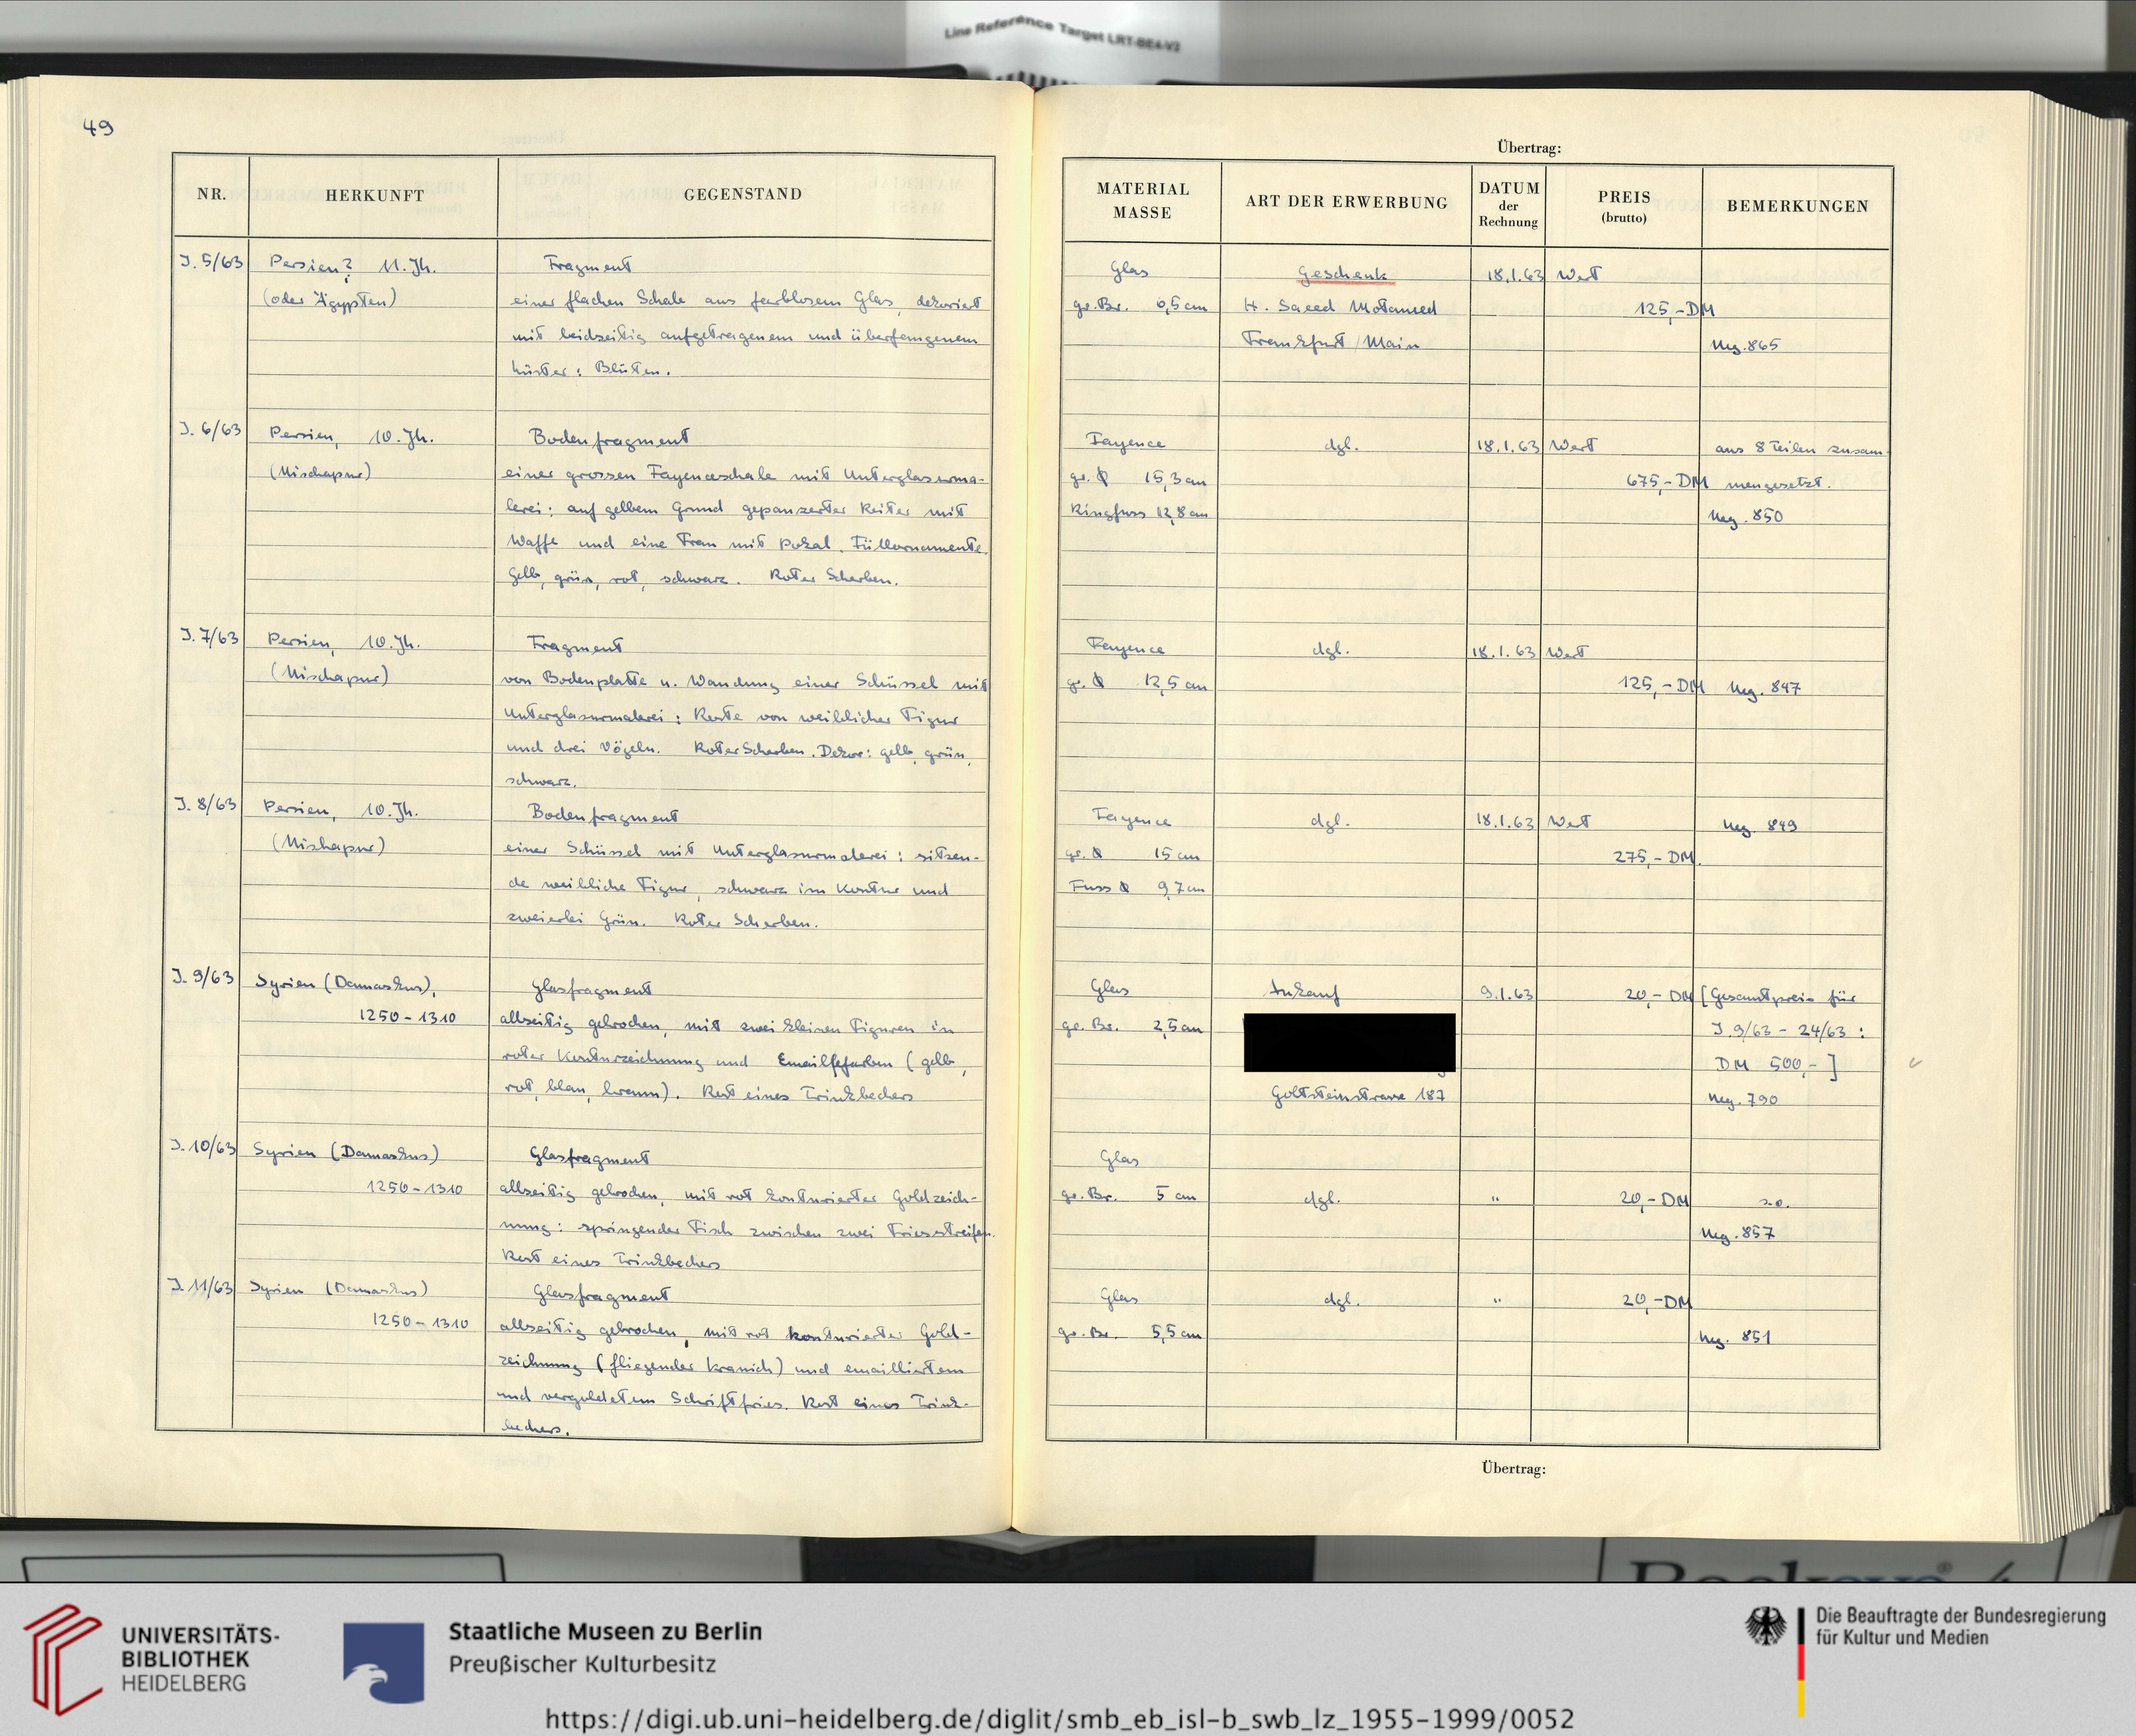 Line Reference Target LRT-BE4-V2
49
NR.
HERKUNFT
GEGENSTAND
J. 5/63 Persien? 11. Jh. Fragment
(oder Ägypten) einer flachen Schale aus farblosem Glas, dekoriert
mit beidseitig aufgetragenem und überfangenem
Muster: Blüten.
J. 6/63 Persien, 10. Jh. Bodenfragment
(Nischapur) einer grossen Fayenceschale mit Unterglasurma-
lerei: auf gelbem Grund gepanzerter Reiter mit
Waffe und eine Frau mit Pokal. Füllornamente.
Gelb, grün, rot, schwarz. Roter Scherben.
J. 7/63 Persien, 10. Jh. Fragment
(Nischapur) von Bodenplatte u. Wandung einer Schüssel mit
Unterglasurmalerei: Reste von weiblicher Figur
und drei Vögeln. Roter Scherben. Dekor: gelb, grün,
schwarz.
J. 8/63 Persien, 10. Jh. Bodenfragment
(Nishapur) einer Schüssel mit Unterglasurmalerei: sitzen-
de weibliche Figur, schwarz im Kontur und
zweierlei Grün. Roter Scherben.
J. 9/63 Syrien (Damaskus), Glasfragment
1250-1310 allseitig gebrochen, mit zwei kleinen Figuren in
roter Konturzeichnung und Emailfarben (gelb,
rot, blau, braun). Rest eines Trinkbechers
J. 10/63 Syrien (Damaskus) Glasfragment
1250-1310 allseitig gebrochen, mit rot konturierter Goldzeich-
nung: springender Fisch zwischen zwei Friesstreifen.
Rest eines Trinkbechers
J. 11/63 Syrien (Damaskus) Glasfragment
1250-1310 allseitig gebrochen, mit rot konturierter Gold-
zeichnung (fliegender Kranich) und emailliertem
und vergoldetem Schriftfries. Rest eines Trink-
bechers.
Übertrag:
MATERIAL
MASSE
ART DER ERWERBUNG
DATUM
der
Rechnung
PREIS
(brutto)
BEMERKUNGEN
Glas Geschenk 18.1.63 Wert
gr. Br. 6,5 cm H. Saeed Motamed 125,- DM
Frankfurt/Main Neg. 865
Fayence dgl. 18.1.63 Wert aus 8 Teilen zusam-
gr. Ø 15,3 cm 675,- DM mengesetzt.
Ringfuss 12,8 cm Neg. 850
Fayence dgl. 18.1.63 Wert
gr. Ø 12,5 cm 125,- DM Neg. 847
Fayence dgl. 18.1.63 Wert Neg. 849
gr. Ø 15 cm 275,- DM
Fuss Ø 9,7 cm
Glas Ankauf 9.1.63 20,- DM [Gesamtpreis für
gr. Br. 2,5 cm J. 9/63 - 24/63:
DM 500,-]
Goltsteinstrasse 187 Neg. 790
Glas
gr. Br. 5 cm dgl. " 20,- DM s.o.
Neg. 857
Glas dgl. " 20,- DM
gr. Br. 5,5 cm Neg. 851
Übertrag:
UNIVERSITÄTS-
BIBLIOTHEK
HEIDELBERG
Staatliche Museen zu Berlin
Preußischer Kulturbesitz
Die Beauftragte der Bundesregierung
für Kultur und Medien
https://digi.ub.uni-heidelberg.de/diglit/smb_eb_isl-b_swb_lz_1955-1999/0052